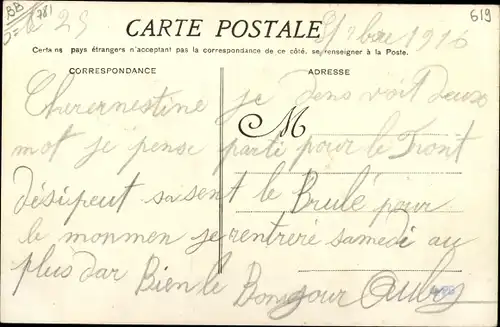 BB
781
25
619
CARTE POSTALE
7bre 1916
Certains pays étrangers n'acceptant pas la correspondance de ce côté, se renseigner à la Poste.
CORRESPONDANCE
ADRESSE
M
Cherernestine je vit deux
mot je pense parti pour le Front
sa sent le Brulé pour
le monmen je rentreré samedi au
plus dar Bien le Bonjour Aubry